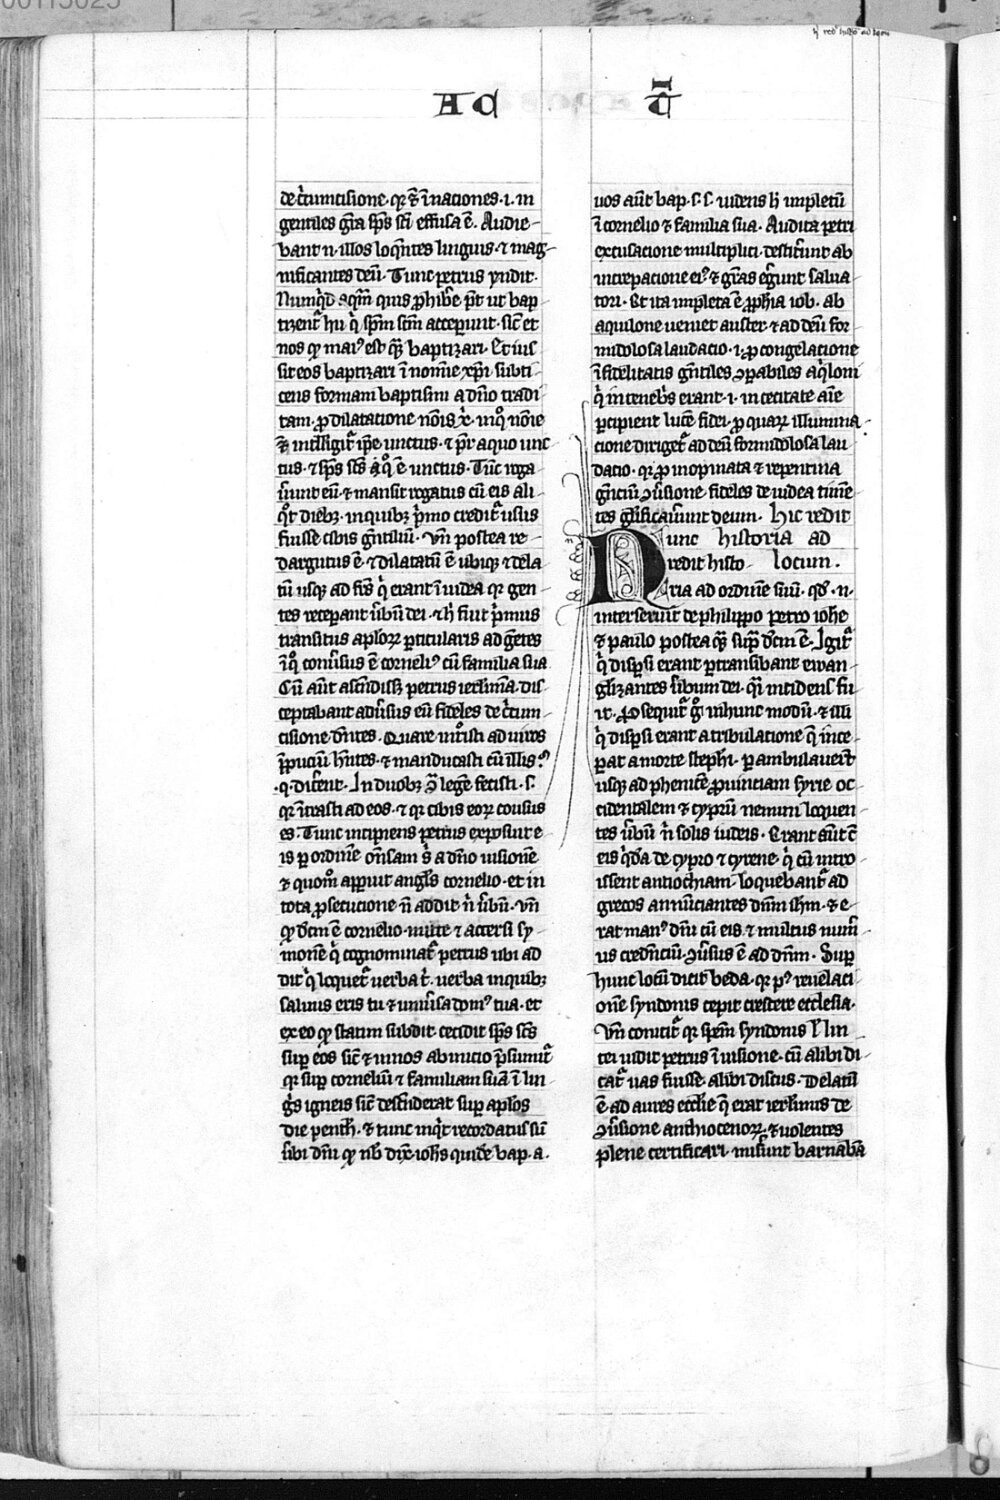 00113023
h͛ red͛ histo͛ ad locu
A C
T̄
de c̾cumcisione. q̾ ⁊ ī naciones .i. in
gentiles gr̄a sp̄s sc̄i effusa ē. Audie-
bant .n. illos loq̄ntes linguis. ⁊ mag-
nificantes deū. Tunc petrus r̄ndit.
Nunq̇d aq̄m quis ꝓhibe pt̄ ut bap
tizent̾ hii q̇ sp̄m sc̄m acceperunt. sic̄ et
nos qꝫ mai᷒ est qꝫ baptizari. Et ius
sit eos baptizari ī nomīe xp̄i subti
cens formam baptismi a dn̄o tradi
tam. ꝓ dilatatione nōis xp̄. in qͦ nōie
⁊ intelligit̾ ip̄e unctus. ⁊ pr̄ a quo unc
tus. ⁊ sp̄s sc̄s ī qͦ ē unctus. Tūc roga
uerunt eū. ⁊ mansit rogatus cū eis ali
qͦt diebꝫ. in quibꝫ p̄mo credit̾ usus
fuisse cibis gentiliū. Vn̄ postea re-
dargutus ē. ⁊ dilatatū ē ubiqꝫ ⁊ dela
tū usqꝫ ad fr̄s q̇ erant ī iudea q̾ gen
tes receperant ūbū dei. ⁊ h̄ fuit p̄mus
transitus aplo᷑ꝝ ꝑticularis ad gētes
ī qͦ conūsus ē corneli᷒ cū familia sua
Cū aūt ascēdiss; petrus ierl̄imā. dis
ceptabant aduersus eū fideles de c̾cum
cisione dn̄tes. Quare int̾sti ad uiros
p̄puciū hn̄tes. ⁊ manducasti cū illis?
.q. dicerent. In duobꝫ ꝯ̄ legē fecisti. s.
q̾ int̾sti ad eos. ⁊ q̾ cibis eoꝝ cousus
es. Tunc incipiens petrus exposuit e
is ꝑ ordinē on̄sam s̾ a dn̄o uisionē
⁊ quom̄ apparuit angl̄s cornelio. et in
tota ꝓsecucione n̄ addit n̄ ūbū. vn̄
qꝫ dc̄m ē cornelio. mitte ⁊ accersi sy-
monē q̇ cognominat̾ petrus ubi ad
dit q̇ loquet̾ uerba t̾. uerba in quibꝫ
saluus eris tu ⁊ uniūsa dom᷒ tua. et
ex eo qꝫ statim subdit. cecidit sp̄s sc̄s
sup eos sic̄ ⁊ in nos ab inicio p̄sumit̾
q̾ sup corneliū ⁊ familiam suā ī lin
g̾s igneis sic̄ descēderat sup aplōs
die pentħ. ⁊ tunc inq̇t recordatus sū
ūbi dn̄i qꝫ nb̄ dix̄. ioh̄s quidē bap. a.
uos aūt bap. s. s. uidens h̄ impletū
ī cornelio ⁊ familia sua. Audita petri
excusacione multiplici. destit̾unt ab
increpacione ei᷒ ⁊ gr̄as eḡunt salua
tori. Et ita impleta ē ꝓphia iob. Ab
aquilone ueniet auster. ⁊ ad deū for
midolosa laudacio .i. ꝓ congelatione
īfidelitatis gn̄tiles ꝯꝑabiles aq̇loni
q̇ in tenebr̄s erant .i. in cecitate aīe
ꝑcipient lucē fidei. ꝓ quaꝝ illumina
cione diriget̾ ad deū formidolosa lau
dacio. q̾ ꝓ inopinata ⁊ repentina
gn̄ciū ꝯūsione fideles de iudea timē
tes gl̄ificauerunt deum. hic redit
Nunc historia ad
redit histo- locum.
ria ad ordinē suū. qd̄ .n.
interseruit de philippo petro ioh̄e
⁊ paulo postea qꝫ sup̄ dc̄m ē. Igit̾
q̇ disꝑsi erant ꝑtransibant ewan-
gl̄izantes ūbum dei. qͣi incidens fu
it. Ꝓsequit̾ g̊ in hunc modū. ⁊ illi
q̇ disꝑsi erant a tribulatione q̄ ince-
pat a morte stephi. ꝑambulauert̄
usqꝫ ad phenicē ꝓuinciam syrie oc
cidentalem ⁊ cyprū nemini loquen
tes ūbū n̄ solis iudeis. Erant aūt ē
eis q̇dā de cypro ⁊ cyrene. q̇ cū intro
issent antiochiam. loquebant̾ ad
grecos annūciantes dn̄m ihm̄. ⁊ e-
rat man᷒ dn̄i cū eis. ⁊ multus num̄
us credn̄ciū. ꝯūsus ē ad dn̄m. Sup
hunc locū dicit beda. q̾ p᷒ reuelaci
onē syndonis cepit crescere ecclesia.
Vn̄ conicit̾ q̾ speīm syndonis ł lin
tei uidit petrus ī uisione. cū alibi di
cat̾ uas fuisse alibi discus. Delatū
ē ad aures ecclie q̄ erat ierl̄imis de
ꝯūsione anthiocenoꝝ. ⁊ uolentes
plene certificari. miserunt barnabā